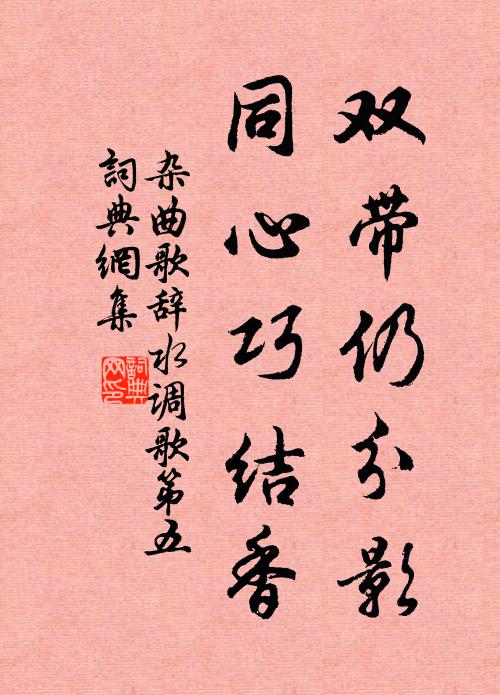 双带仍分影
同心巧结香
杂曲歌辞水调歌第五
詞典網集
詞典
网印